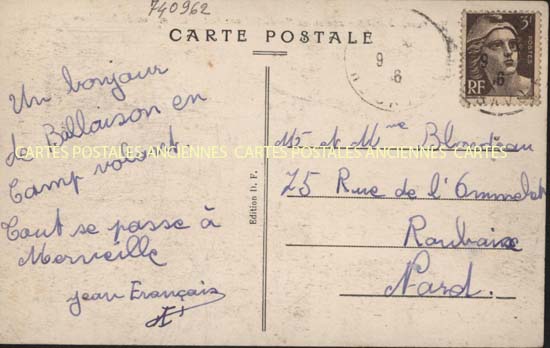 740962
CARTE POSTALE
3F
POSTES
RF
9
6
9
6
Un bonjour
de Ballaison en
Camp volant
Tout se passe à
Merveille
Jean François
Edition D. F.
Mr et Mme
75 Rue de l'Ommelet
Roubaix
Nord.
CARTES POSTALES ANCIENNES CARTES POSTALES ANCIENNES CARTES POSTALES ANCIENNES